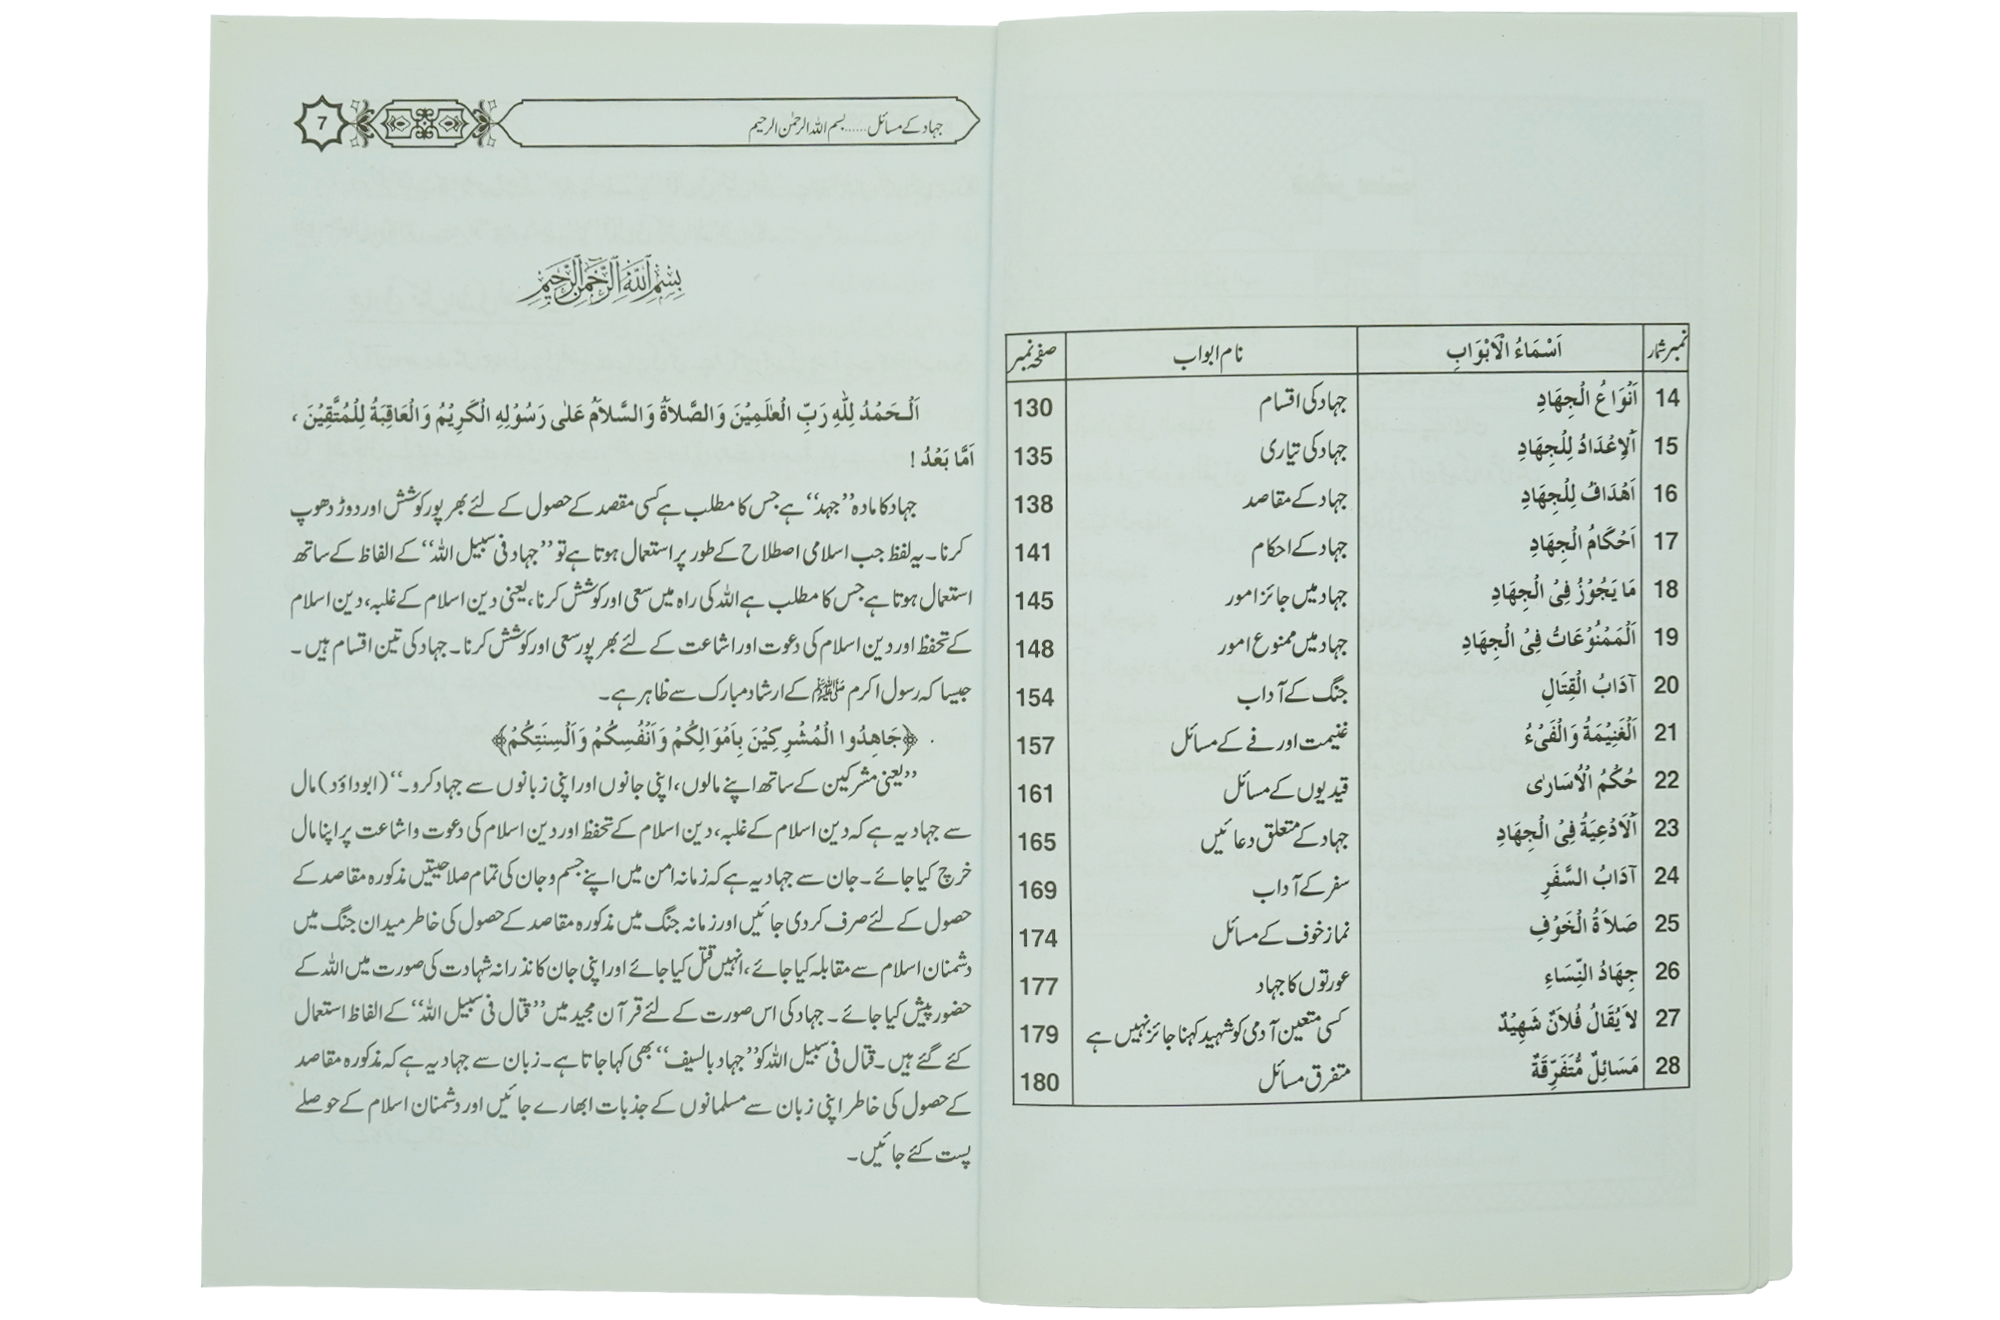 نمبر شمار	اَسْمَاءُ الْاَبْوَابِ	نام ابواب	صفحہ نمبر
14	اَنْوَاعُ الْجِهَادِ	جہاد کی اقسام	130
15	اَلْاِعْدَادُ لِلْجِهَادِ	جہاد کی تیاری	135
16	اَهْدَافُ لِلْجِهَادِ	جہاد کے مقاصد	138
17	اَحْكَامُ الْجِهَادِ	جہاد کے احکام	141
18	مَا يَجُوْزُ فِی الْجِهَادِ	جہاد میں جائز امور	145
19	اَلْمَمْنُوْعَاتُ فِی الْجِهَادِ	جہاد میں ممنوع امور	148
20	آدَابُ الْقِتَالِ	جنگ کے آداب	154
21	اَلْغَنِيْمَةُ وَالْفَیْءُ	غنیمت اور فے کے مسائل	157
22	حُكْمُ الْاُسَارٰى	قیدیوں کے مسائل	161
23	اَلْاَدْعِيَةُ فِی الْجِهَادِ	جہاد کے متعلق دعائیں	165
24	آدَابُ السَّفَرِ	سفر کے آداب	169
25	صَلاَةُ الْخَوْفِ	نماز خوف کے مسائل	174
26	جِهَادُ النِّسَاءِ	عورتوں کا جہاد	177
27	لاَ يُقَالُ فُلاَنٌ شَهِيْدٌ	کسی متعین آدمی کو شہید کہنا جائز نہیں ہے	179
28	مَسَائِلٌ مُّتَفَرِّقَةٌ	متفرق مسائل	180
جہاد کے مسائل......بسم اللہ الرحمٰن الرحیم	7
بِسْمِ اللّٰهِ الرَّحْمٰنِ الرَّحِيْمِ
اَلْـحَمْدُ لِلّٰهِ رَبِّ الْعٰلَمِيْنَ وَالصَّلاَةُ وَالسَّلاَمُ عَلٰى رَسُوْلِهِ الْكَرِيْمُ وَالْعَاقِبَةُ لِلْمُتَّقِيْنَ ،
اَمَّا بَعْدُ !
جہاد کا مادہ ’’جہد‘‘ ہے جس کا مطلب ہے کسی مقصد کے حصول کے لئے بھر پور کوشش اور دوڑ دھوپ
کرنا۔ یہ لفظ جب اسلامی اصطلاح کے طور پر استعمال ہوتا ہے تو ’’جہاد فی سبیل اللہ‘‘ کے الفاظ کے ساتھ
استعمال ہوتا ہے جس کا مطلب ہے اللہ کی راہ میں سعی اور کوشش کرنا، یعنی دین اسلام کے غلبہ، دین اسلام
کے تحفظ اور دین اسلام کی دعوت اور اشاعت کے لئے بھر پور سعی اور کوشش کرنا۔ جہاد کی تین اقسام ہیں۔
جیسا کہ رسول اکرم ﷺ کے ارشاد مبارک سے ظاہر ہے۔
﴿جَاهِدُوا الْمُشْرِكِيْنَ بِاَمْوَالِكُمْ وَاَنْفُسِكُمْ وَاَلْسِنَتِكُمْ﴾
’’یعنی مشرکین کے ساتھ اپنے مالوں، اپنی جانوں اور اپنی زبانوں سے جہاد کرو۔‘‘ (ابوداؤد) مال
سے جہاد یہ ہے کہ دین اسلام کے غلبہ، دین اسلام کے تحفظ اور دین اسلام کی دعوت و اشاعت پر اپنا مال
خرچ کیا جائے۔ جان سے جہاد یہ ہے کہ زمانہ امن میں اپنے جسم و جان کی تمام صلاحیتیں مذکورہ مقاصد کے
حصول کے لئے صرف کر دی جائیں اور زمانہ جنگ میں مذکورہ مقاصد کے حصول کی خاطر میدان جنگ میں
دشمنان اسلام سے مقابلہ کیا جائے، انہیں قتل کیا جائے اور اپنی جان کا نذرانہ شہادت کی صورت میں اللہ کے
حضور پیش کیا جائے۔ جہاد کی اس صورت کے لئے قرآن مجید میں ’’قتال فی سبیل اللہ‘‘ کے الفاظ استعمال
کئے گئے ہیں۔ قتال فی سبیل اللہ کو ’’جہاد بالسیف‘‘ بھی کہا جاتا ہے۔ زبان سے جہاد یہ ہے کہ مذکورہ مقاصد
کے حصول کی خاطر اپنی زبان سے مسلمانوں کے جذبات ابھارے جائیں اور دشمنان اسلام کے حوصلے
پست کئے جائیں۔